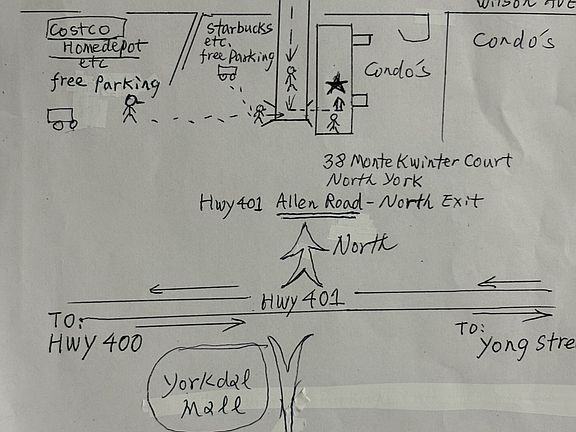 Wilson Ave
Costco
Homedepot
etc
free Parking
Starbucks
etc,
free Parking
Condo's
Condo's
38 Monte Kwinter Court
North York
Hwy 401 Allen Road - North Exit
North
Hwy 401
TO:
Hwy 400
TO:
Yong Stre
Yorkdal
Mall